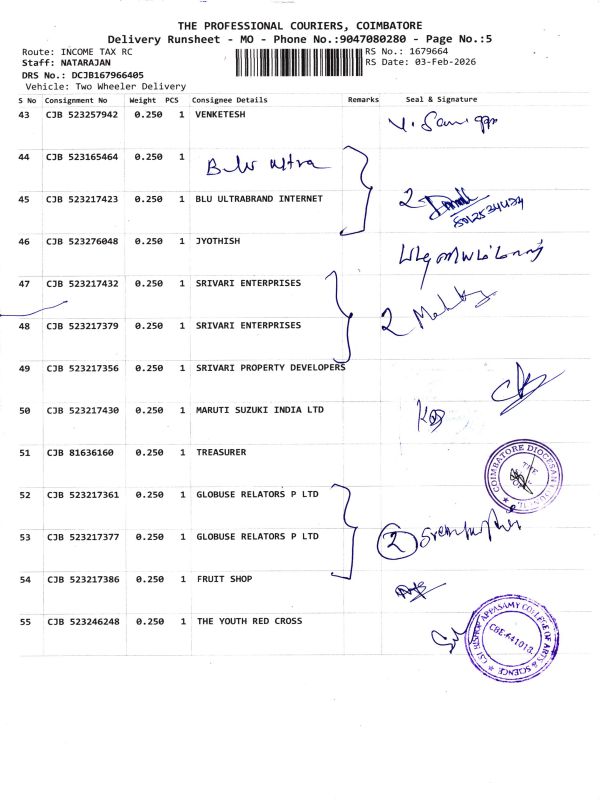 THE PROFESSIONAL COURIERS, COIMBATORE
Delivery Runsheet - MO - Phone No.:9047080280 - Page No.:5
Route: INCOME TAX RC
RS No.: 1679664
Staff: NATARAJAN
RS Date: 03-Feb-2026
DRS No.: DCJB167966405
Vehicle: Two Wheeler Delivery
S No Consignment No Weight PCS Consignee Details Remarks Seal & Signature
43 CJB 523257942 0.250 1 VENKETESH
44 CJB 523165464 0.250 1 Blu ultra
45 CJB 523217423 0.250 1 BLU ULTRABRAND INTERNET 2
46 CJB 523276048 0.250 1 JYOTHISH
47 CJB 523217432 0.250 1 SRIVARI ENTERPRISES
48 CJB 523217379 0.250 1 SRIVARI ENTERPRISES 2
49 CJB 523217356 0.250 1 SRIVARI PROPERTY DEVELOPERS
50 CJB 523217430 0.250 1 MARUTI SUZUKI INDIA LTD
51 CJB 81636160 0.250 1 TREASURER
COIMBATORE DIOCESAN COUNCIL
52 CJB 523217361 0.250 1 GLOBUSE RELATORS P LTD
53 CJB 523217377 0.250 1 GLOBUSE RELATORS P LTD 2
54 CJB 523217386 0.250 1 FRUIT SHOP
55 CJB 523246248 0.250 1 THE YOUTH RED CROSS
CSI BISHOP APPASAMY COLLEGE OF ARTS & SCIENCE
CBE-641018.